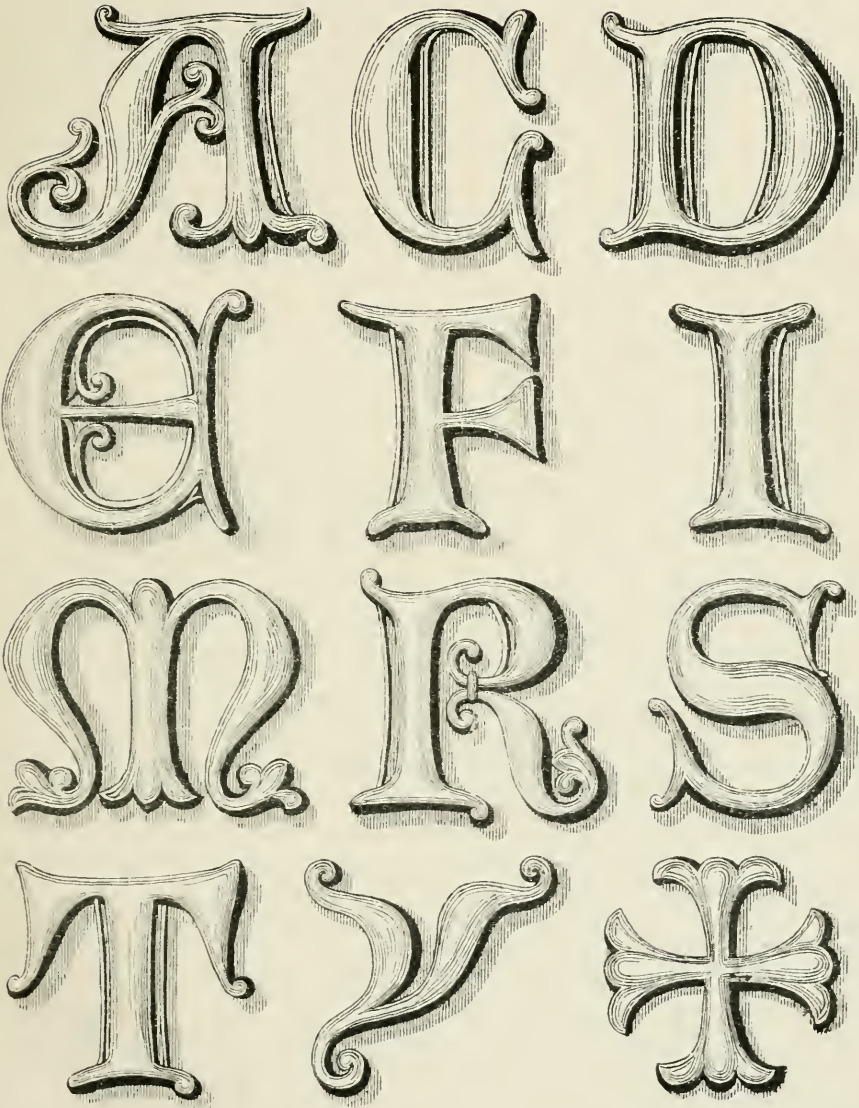 A C D
E F I
M R S
T Y ✠